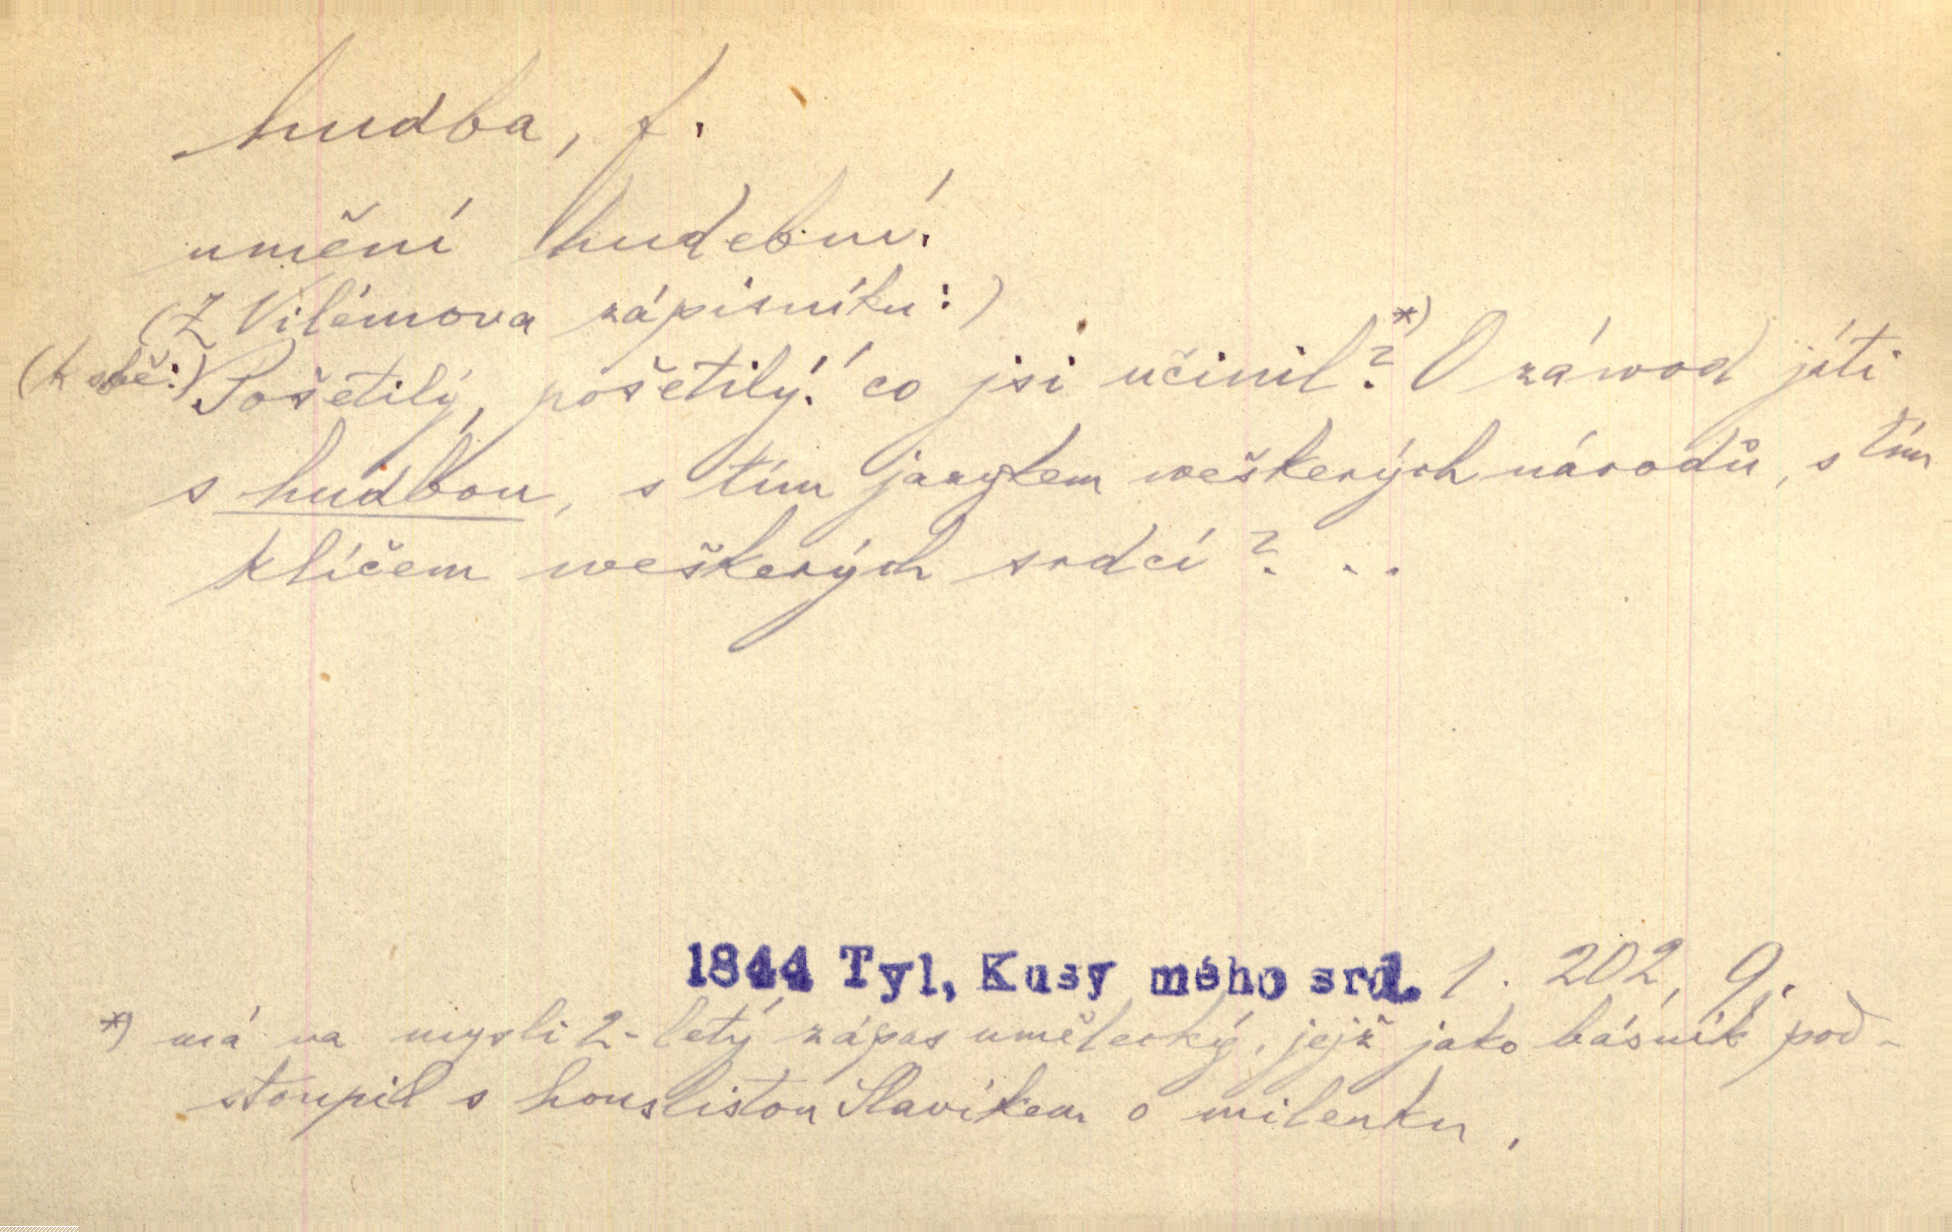 hudba, f.
umění hudební.
(Z Vilémova zápisníku:)
(k sobě:) Pošetilý, pošetilý! co jsi učinil?*) O záwod jíti
s hudbou, s tím jazykem weškerých národů, s tím
klíčem weškerých srdcí? ..
1844 Tyl, Kusy mého srd. 1. 202, 9.
*) má na mysli 2-letý zápas umělecký, jejž jako básník pod-
stoupil s houslistou Slavíkem o milenku.